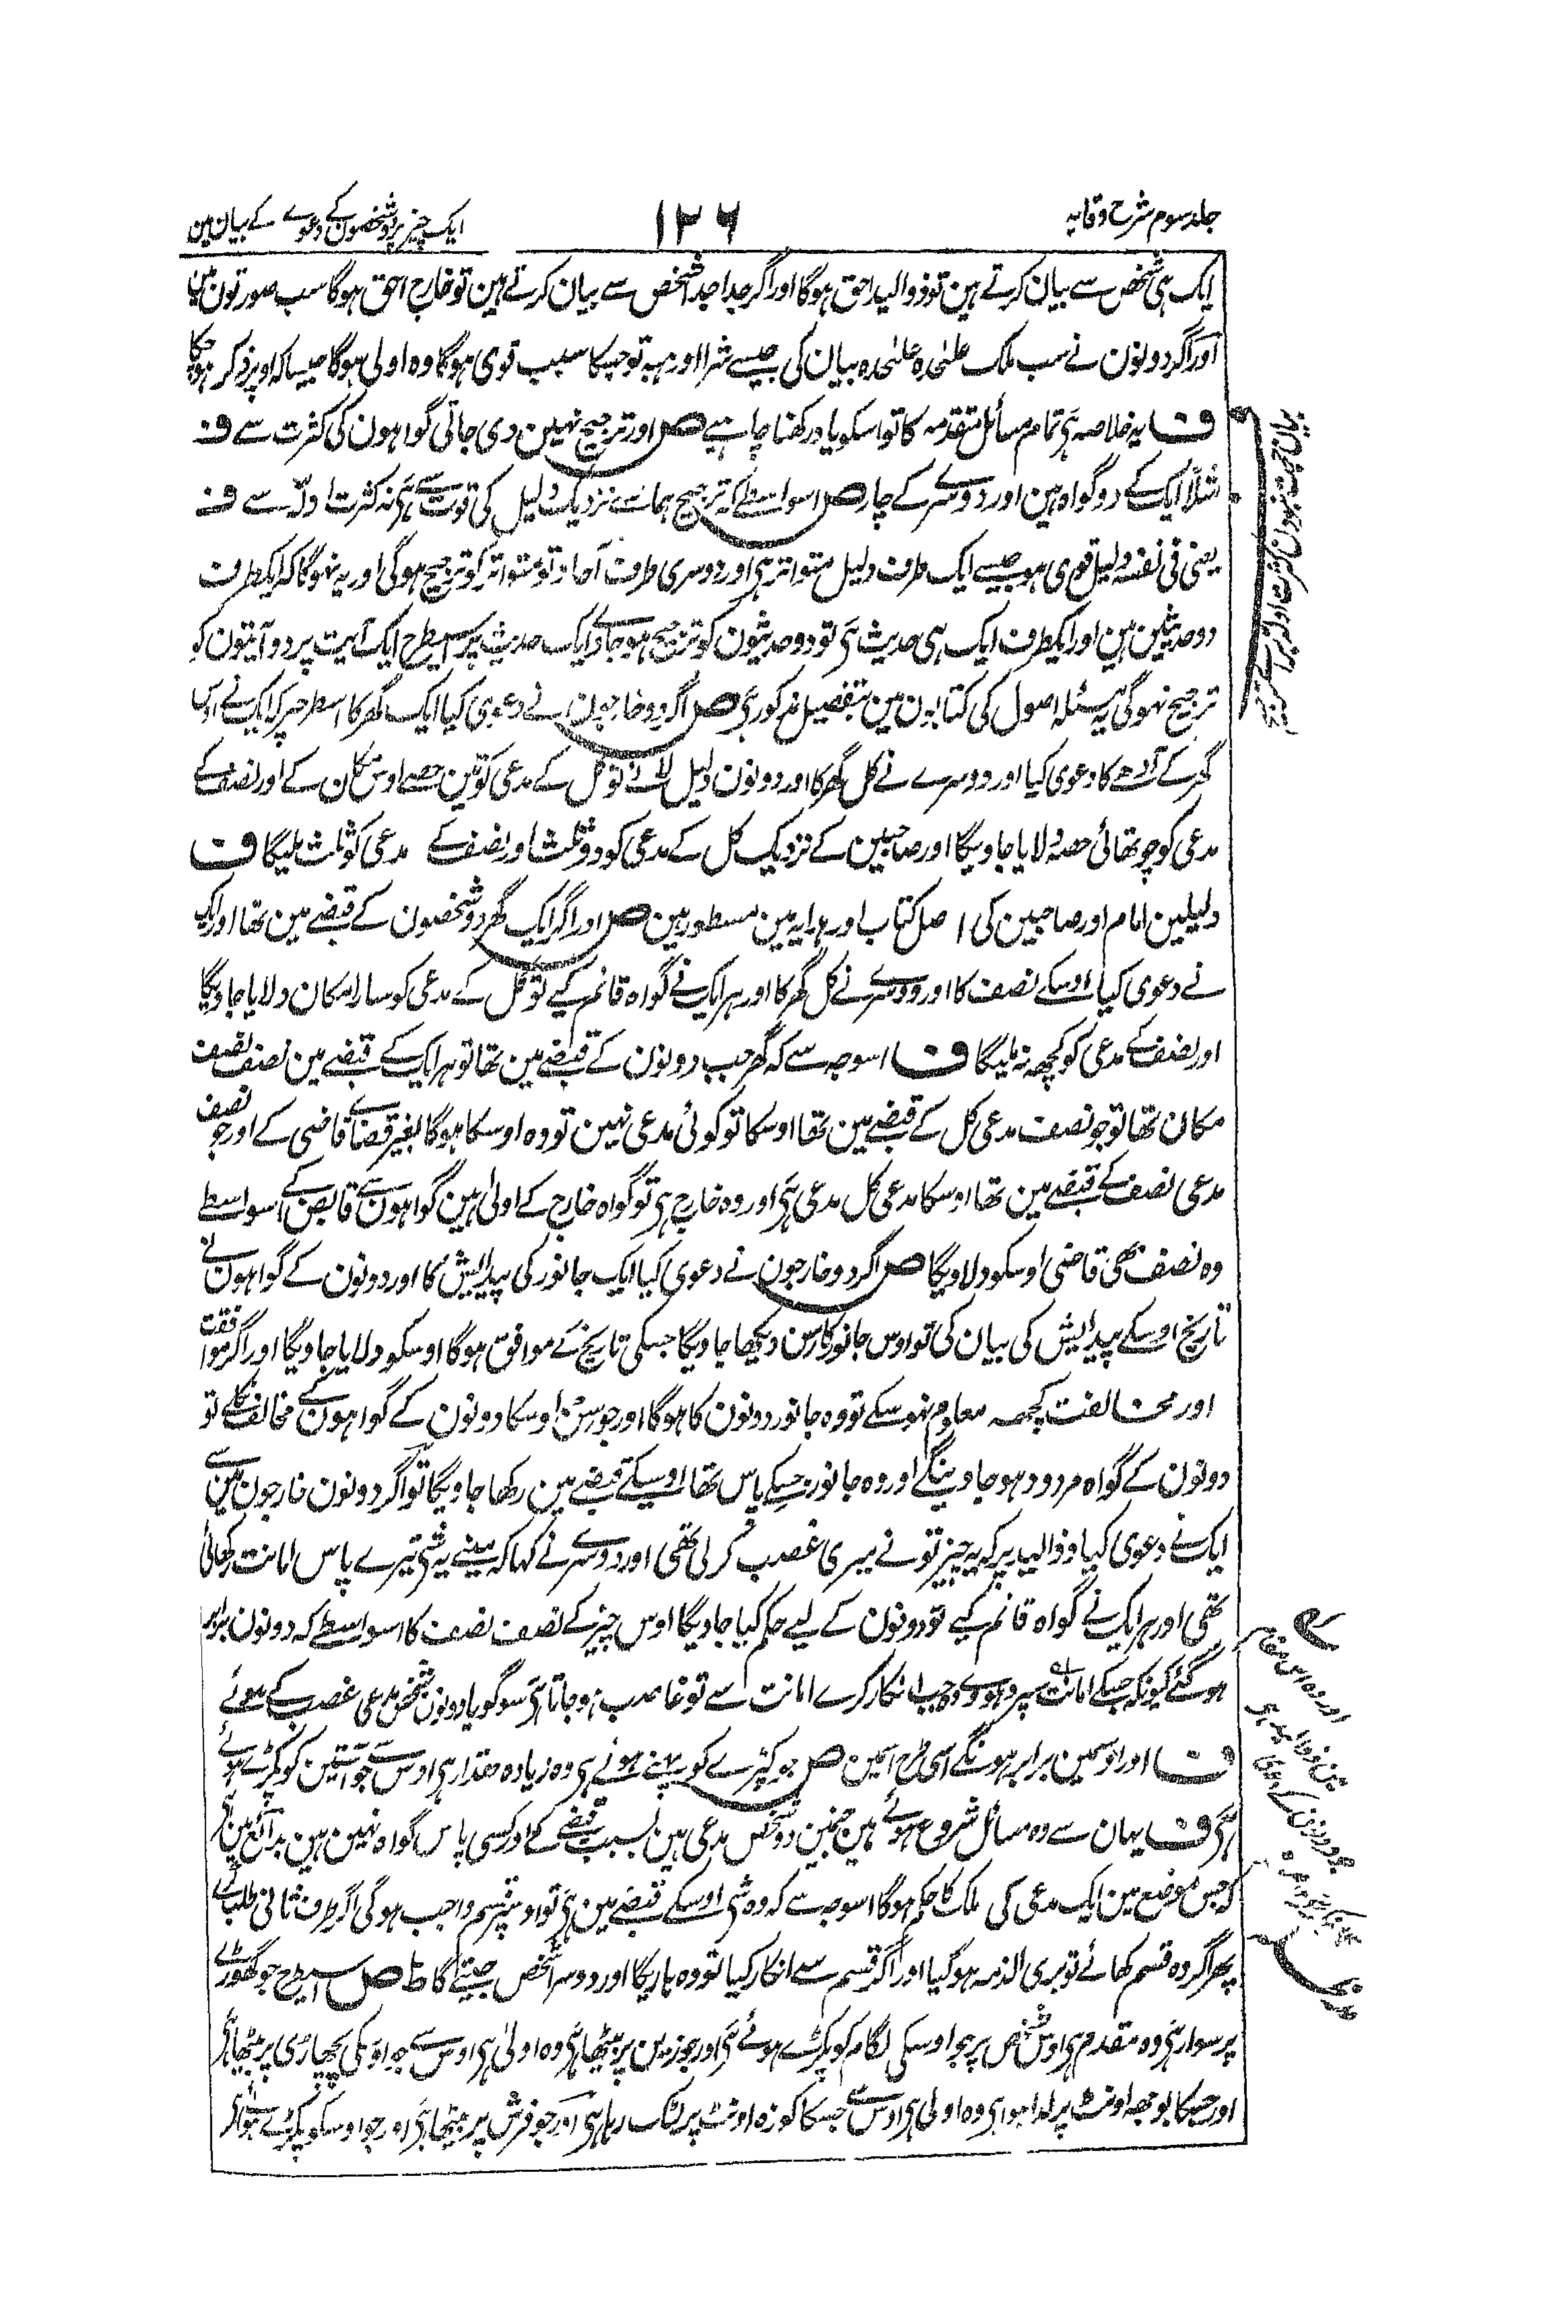 جلد سوم شرح وقایہ
۱۲۶
ایک چیز پر دو شخصون کے دعوے کے بیان مین
ایک ہی شخص سے بیان کرتے ہین تو ذوالید احق ہوگا اور اگر جدا جدا شخص سے بیان کرتے ہین تو خارج احق ہوگا سب صورتون مین
اور اگر دونون نے سبب ملک علٰحدہ علٰحدہ بیان کی جیسے شرا اور ہبہ تو جسکا سبب قوی ہوگا وہ اولی ہوگا جیسا کہ اوپر ذکر ہو چکا
ف یہ خلاصہ ہی تمام مسائل متقدمہ کا تو اسکو یاد رکھنا چاہیے ص اور ترجیح نہین دی جاتی گواہون کی کثرت سے ف
مثلاً ایک کے دو گواہ ہین اور دوسرے کے چار ص اسواسطے کہ ترجیح ہمارے نزدیک دلیل کی قوت سے ہی نہ کثرت ادلّہ سے ف
یعنی فی نفسہ دلیل قوی ہو جیسے ایک طرف دلیل متواتر ہی اور دوسری طرف آحاد تو متواتر کو ترجیح ہوگی اور یہ نہوگا کہ ایکطرف
دو حدیثین ہین اور ایکطرف ایک ہی حدیث ہی تو دو حدیثون کو ترجیح ہو جاوے ایک حدیث پر اسیطرح ایک آیت پر دو آیتون کو
ترجیح نہوگی یہ مسئلہ اصول کی کتابون مین بتفصیل مذکور ہی ص اگر دو خارجون نے دعوی کیا ایک گھر کا اسطرح پر کہ ایک نے اوس
گھر کے آدھے کا دعوی کیا اور دوسرے نے کل گھر کا اور دونون دلیل لائے تو کل کے مدعی کو تین حصے اوس مکان کے اور نصف کے
مدعی کو چوتھائی حصہ دلایا جاویگا اور صاحبین کے نزدیک کل کے مدعی کو دو ثلث اور نصف کے مدعی کو ثلث ملیگا ف
دلیلین امام اور صاحبین کی اصل کتاب اور ہدایہ مین مسطور ہین ص اور اگر ایک گھر دو شخصون کے قبضے مین تھا اور ایک
نے دعوی کیا اوسکے نصف کا اور دوسرے نے کل گھر کا اور ہر ایک نے گواہ قائم کیے تو کل کے مدعی کو سارا مکان دلایا جاویگا
اور نصف کے مدعی کو کچھ نہ ملیگا ف اسوجہ سے کہ گھر جب دونون کے قبضے مین تھا تو ہر ایک کے قبضے مین نصف نصف
مکان تھا تو جو نصف مدعی کل کے قبضے مین تھا اوسکا تو کوئی مدعی نہین تو وہ اوسکا ہوگا بغیر قضاے قاضی کے اور جو نصف
مدعی نصف کے قبضے مین تھا اوسکا مدعی کل مدعی ہی اور وہ خارج ہی تو گواہ خارج کے اولیٰ ہین گواہون سے قابض کے اسواسطے
وہ نصف بھی قاضی اوسکو دلاویگا ص اگر دو خارجون نے دعوی کیا ایک جانور کی پیدایش کا اور دونون کے گواہون نے
تاریخ اوسکے پیدایش کی بیان کی تو اوس جانور کا سن دیکھا جاویگا جسکی تاریخ کے موافق ہوگا اوسکو دلایا جاویگا اور اگر موافقت
اور مخالفت کچھ معلوم نہو سکے تو وہ جانور دونون کا ہوگا اور جو سن اوسکا دونون کے گواہون کے مخالف نکلے تو
دونون کے گواہ مردود ہو جاوینگے اور وہ جانور جسکے پاس تھا اوسیکے قبضے مین رکھا جاویگا تو اگر دونون خارجون مین سے
ایک نے دعوی کیا ذوالید پر کہ یہ چیز تونے میری غصب کر لی تھی اور دوسرے نے کہا کہ مینے یہ شی تیرے پاس امانت رکھائی
تھی اور ہر ایک نے گواہ قائم کیے تو دونون کے لیے حکم کیا جاویگا اوس چیز کے نصف نصف کا اسواسطے کہ دونون برابر
ہو گئے کیونکہ جسکے امانت سپرد ہووے وہ جب انکار کرے امانت سے تو غاصب ہو جاتا ہی سو گویا دونون شخص مدعی غصب کے ہوئے
ف اور اوسمین برابر ہونگے اسی طرح اسمین ص جو کپڑے کو پہنے ہوئے ہی وہ زیادہ حقدار ہی اوس سے جو آستین کو پکڑے ہوئے
ہی ف یہان سے وہ مسائل شروع ہوئے ہین جنمین دو شخص مدعی ہین بسبب قبضے کے اور کسی پاس گواہ نہین ہین بدائع مین ہی
کہ جس موضع مین ایک مدعی کی ملک کا حکم ہوگا اسوجہ سے کہ وہ شی اوسکے قبضے مین ہی تو اوسپر قسم واجب ہوگی اگر طرف ثانی طلب کرے
پھر اگر وہ قسم کھائے تو بری الذمہ ہو گیا اور اگر قسم سے انکار کیا تو وہ ہاریگا اور دوسرا شخص جیتے گا ط ص اسیطرح جو گھوڑے
پر سوار ہی وہ مقدم ہی اوس شخص پر جو اوسکی لگام کو پکڑے ہوئے ہی اور جو زین پر بیٹھا ہی وہ اولیٰ ہی اوس سے جو اوسکی پچھاڑی پر بیٹھا ہی
اور جسکا بوجھ اونٹ پر لدا ہوا ہی وہ اولی ہی اوس سے جسکا کوزہ اونٹ پر لٹک رہا ہی اور جو فرش پر بیٹھا ہی اور جو اوسکو پکڑے ہوئے ہی